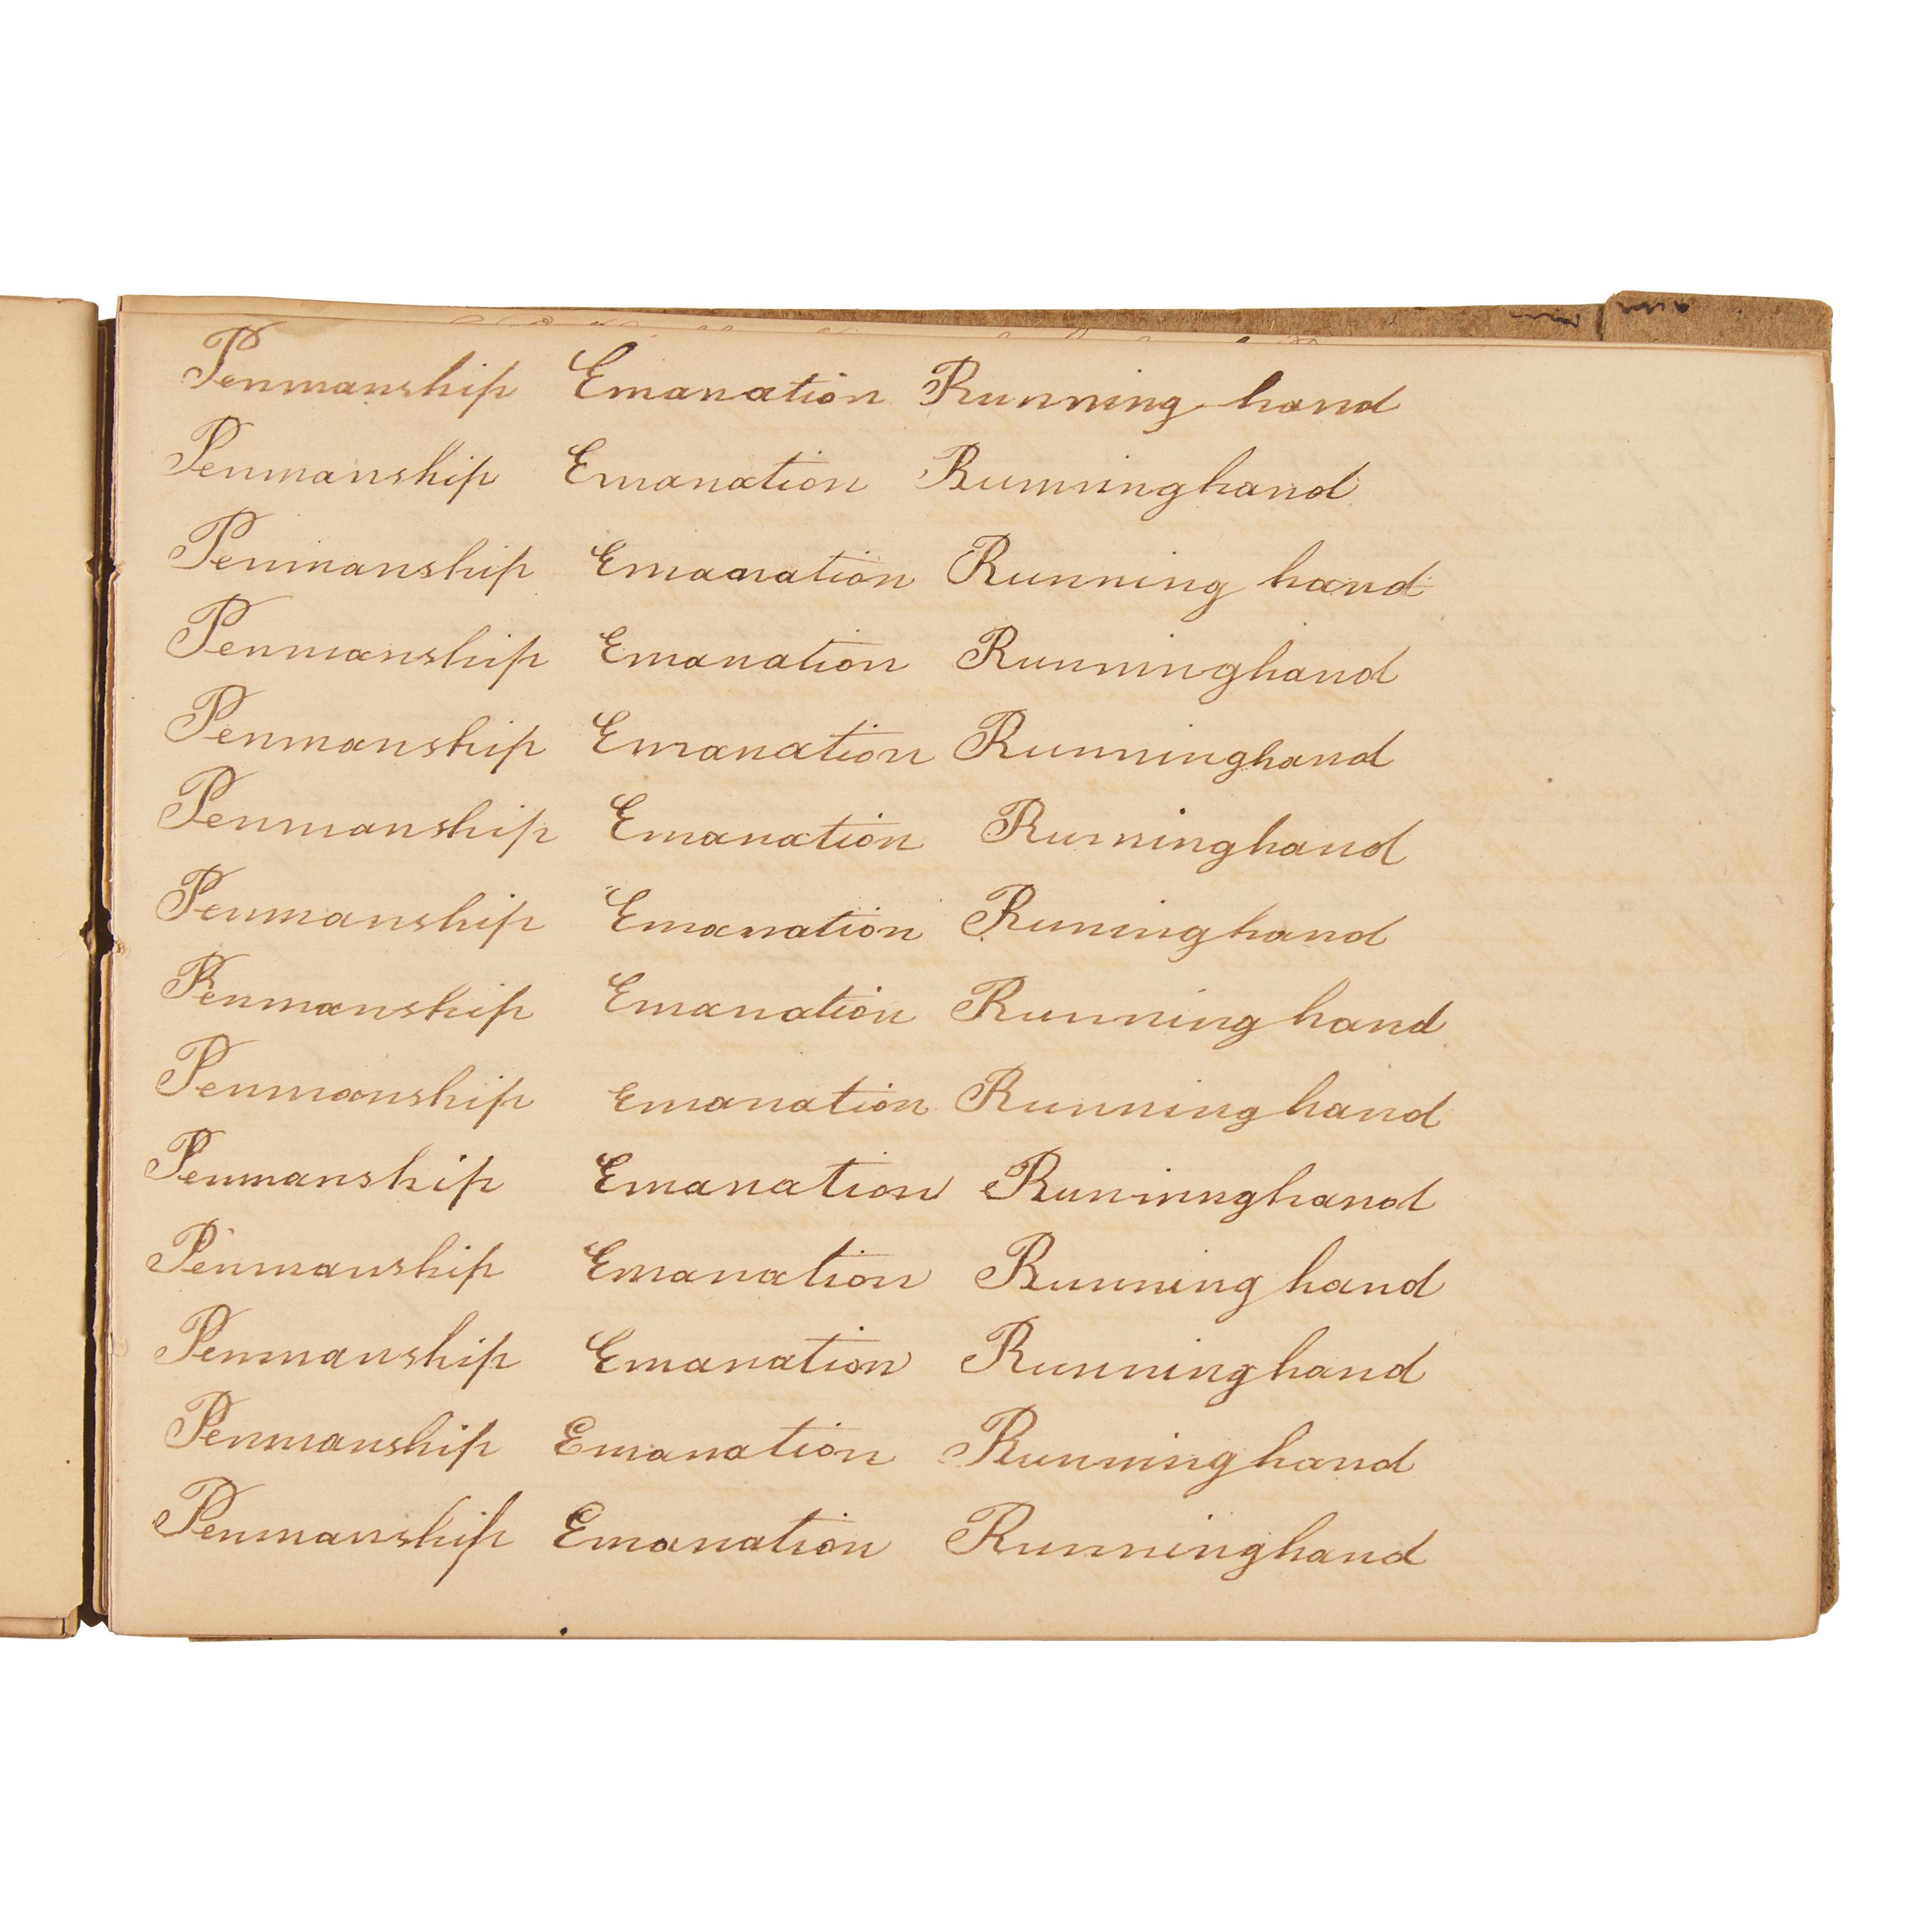 Penmanship Emanation Running hand
Penmanship Emanation Runninghand
Penmanship Emanation Running hand
Penmanship Emanation Runninghand
Penmanship Emanation Runninghand
Penmanship Emanation Runninghand
Penmanship Emanation Runinghand
Penmanship Emanation Running hand
Penmanship Emanation Running hand
Penmanship Emanation Runninghand
Penmanship Emanation Running hand
Penmanship Emanation Runninghand
Penmanship Emanation Running hand
Penmanship Emanation Runninghand